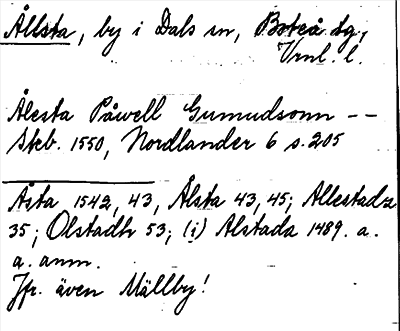 Ållsta, by i Dals sn, Boteå tg,
Vrnl. l.
Ålesta Påwell Gumudsonn --
Skb. 1550, Nordlander 6 s. 205
Åsta 1542, 43, Ålsta 43, 45; Allestadz
35; Olstadh 53; (i) Alstada 1489. a.
a. anm.
Jfr. även Mällby!